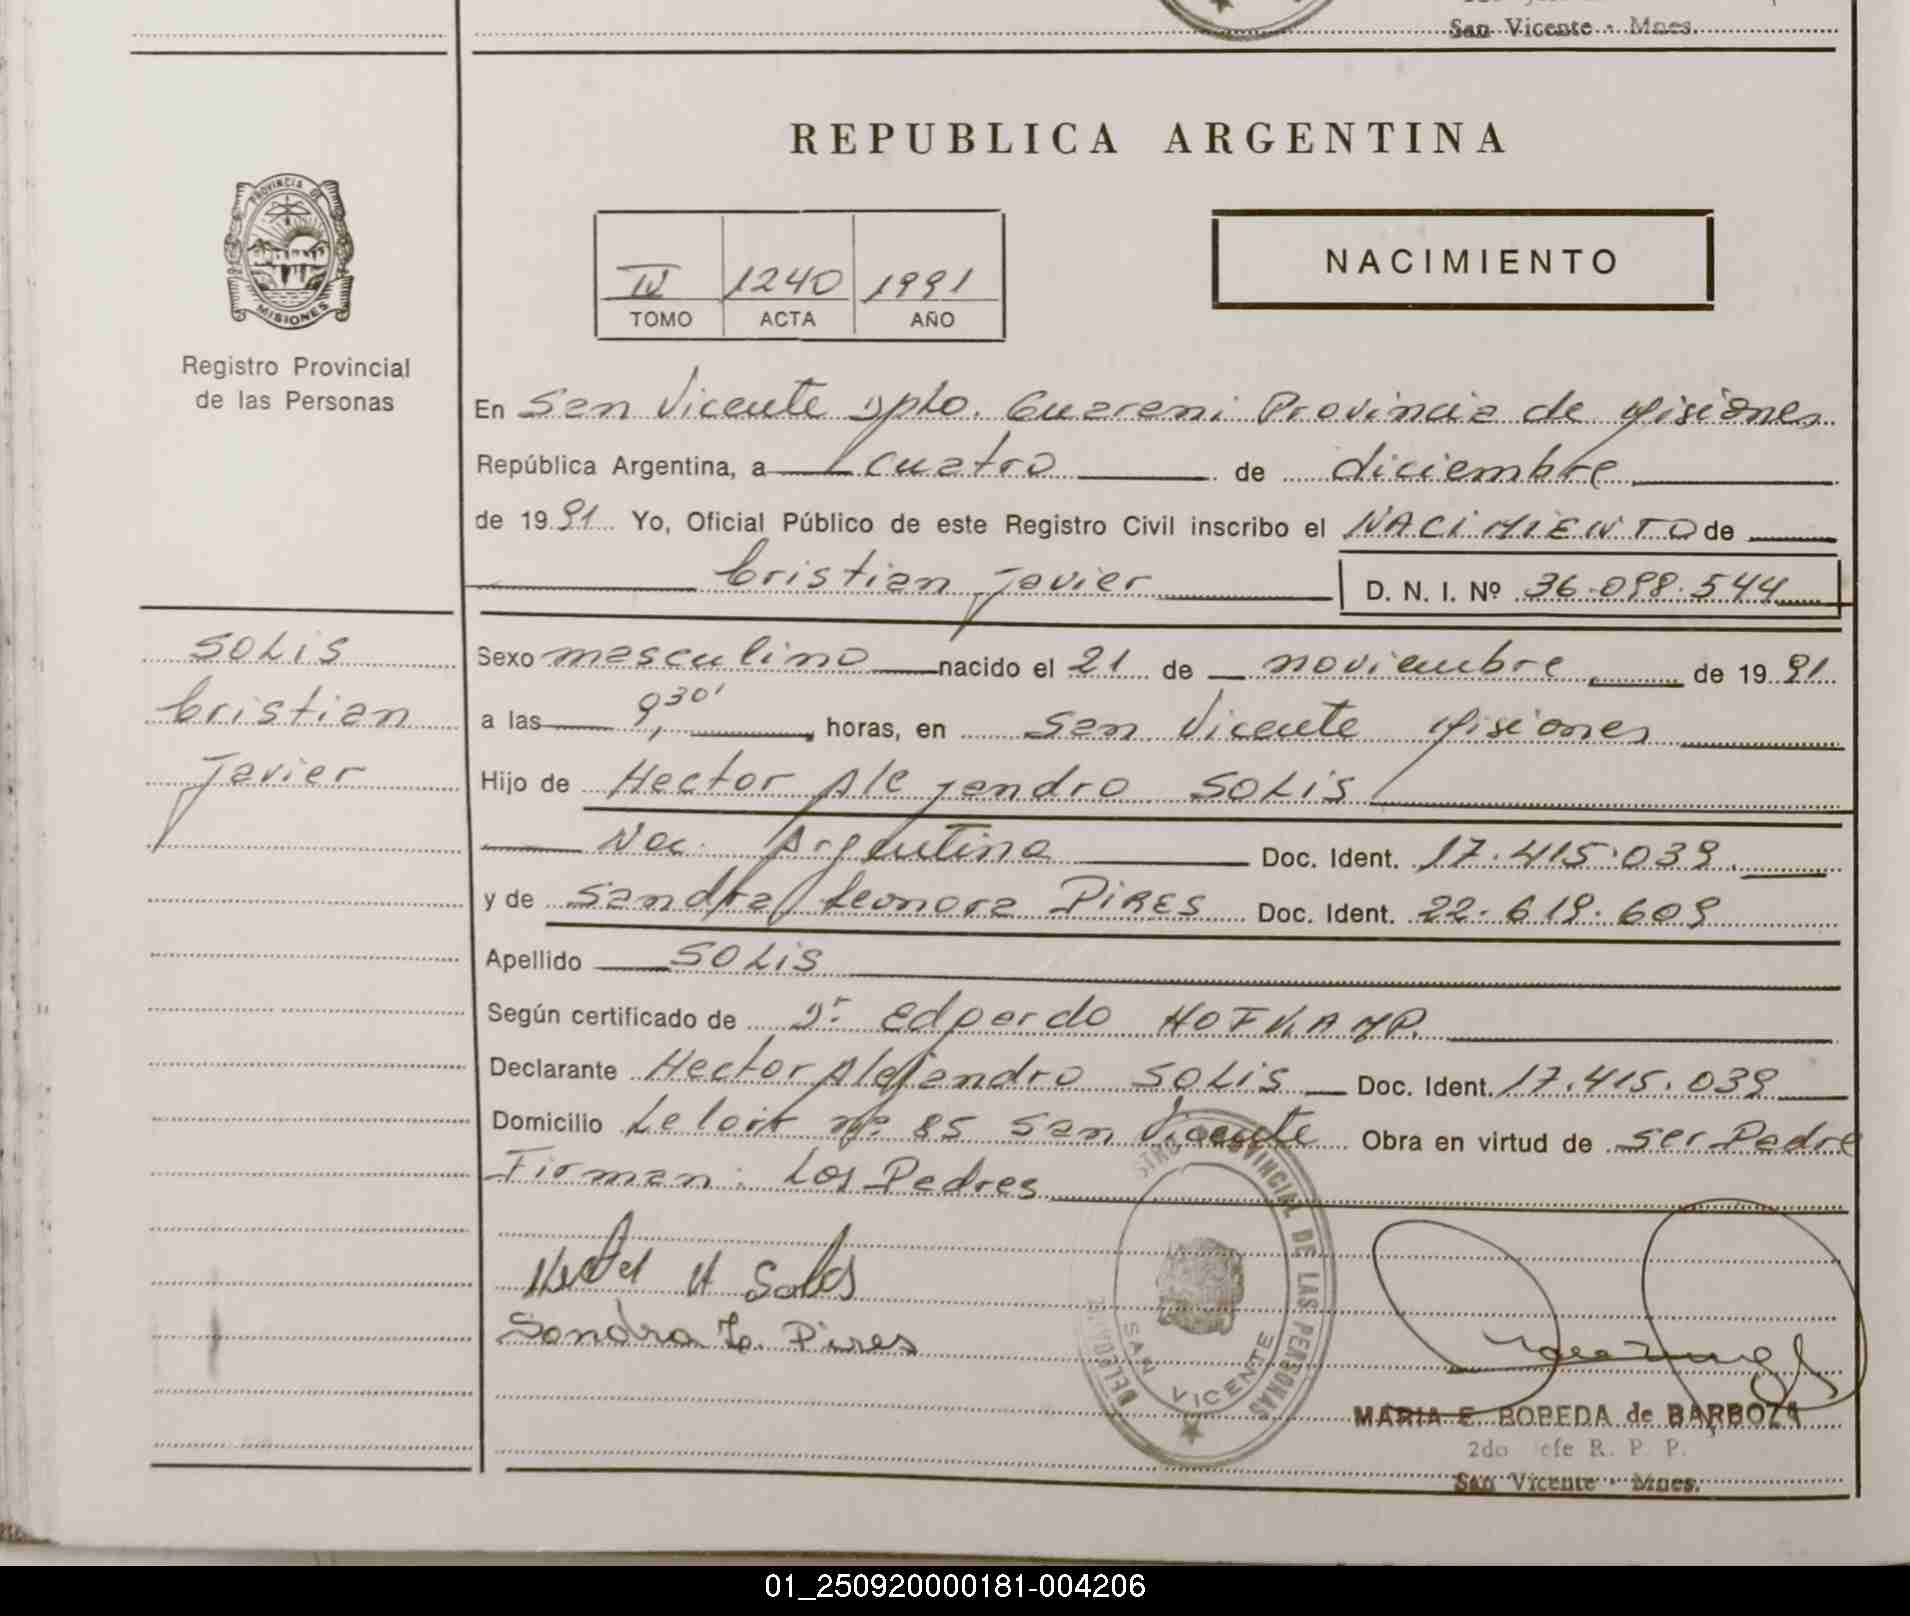 San Vicente - Mnes.
REPUBLICA ARGENTINA
PROVINCIA DE
MISIONES
Registro Provincial
de las Personas
IV 1240 1991
TOMO ACTA AÑO
NACIMIENTO
En San Vicente Dpto. Guarani Provincia de Misiones
República Argentina, a cuatro de diciembre
de 1991 Yo, Oficial Público de este Registro Civil inscribo el NACIMIENTO de
Cristian Javier D. N. I. Nº 36.098.544
SOLIS
Cristian
Javier
Sexo masculino nacido el 21 de noviembre de 1991
a las 9,30' horas, en San Vicente Misiones
Hijo de Hector Alejandro SOLIS
Nac. Argentina Doc. Ident. 17.415.039
y de Sandra Leonora PIRES Doc. Ident. 22.619.609
Apellido SOLIS
Según certificado de Dr. Edgardo
Declarante Hector Alejandro SOLIS Doc. Ident. 17.415.039
Domicilio Leloir nº 85 San Vicente Obra en virtud de ser Padre
Firman: Los Padres
Hector A Solis
Sandra L. Pires
PROVINCIAL DE LAS PERSONAS
SAN VICENTE
MARIA E. BOBEDA de BARBOZA
2do efe R. P. P.
San Vicente - Mnes.
01_250920000181-004206